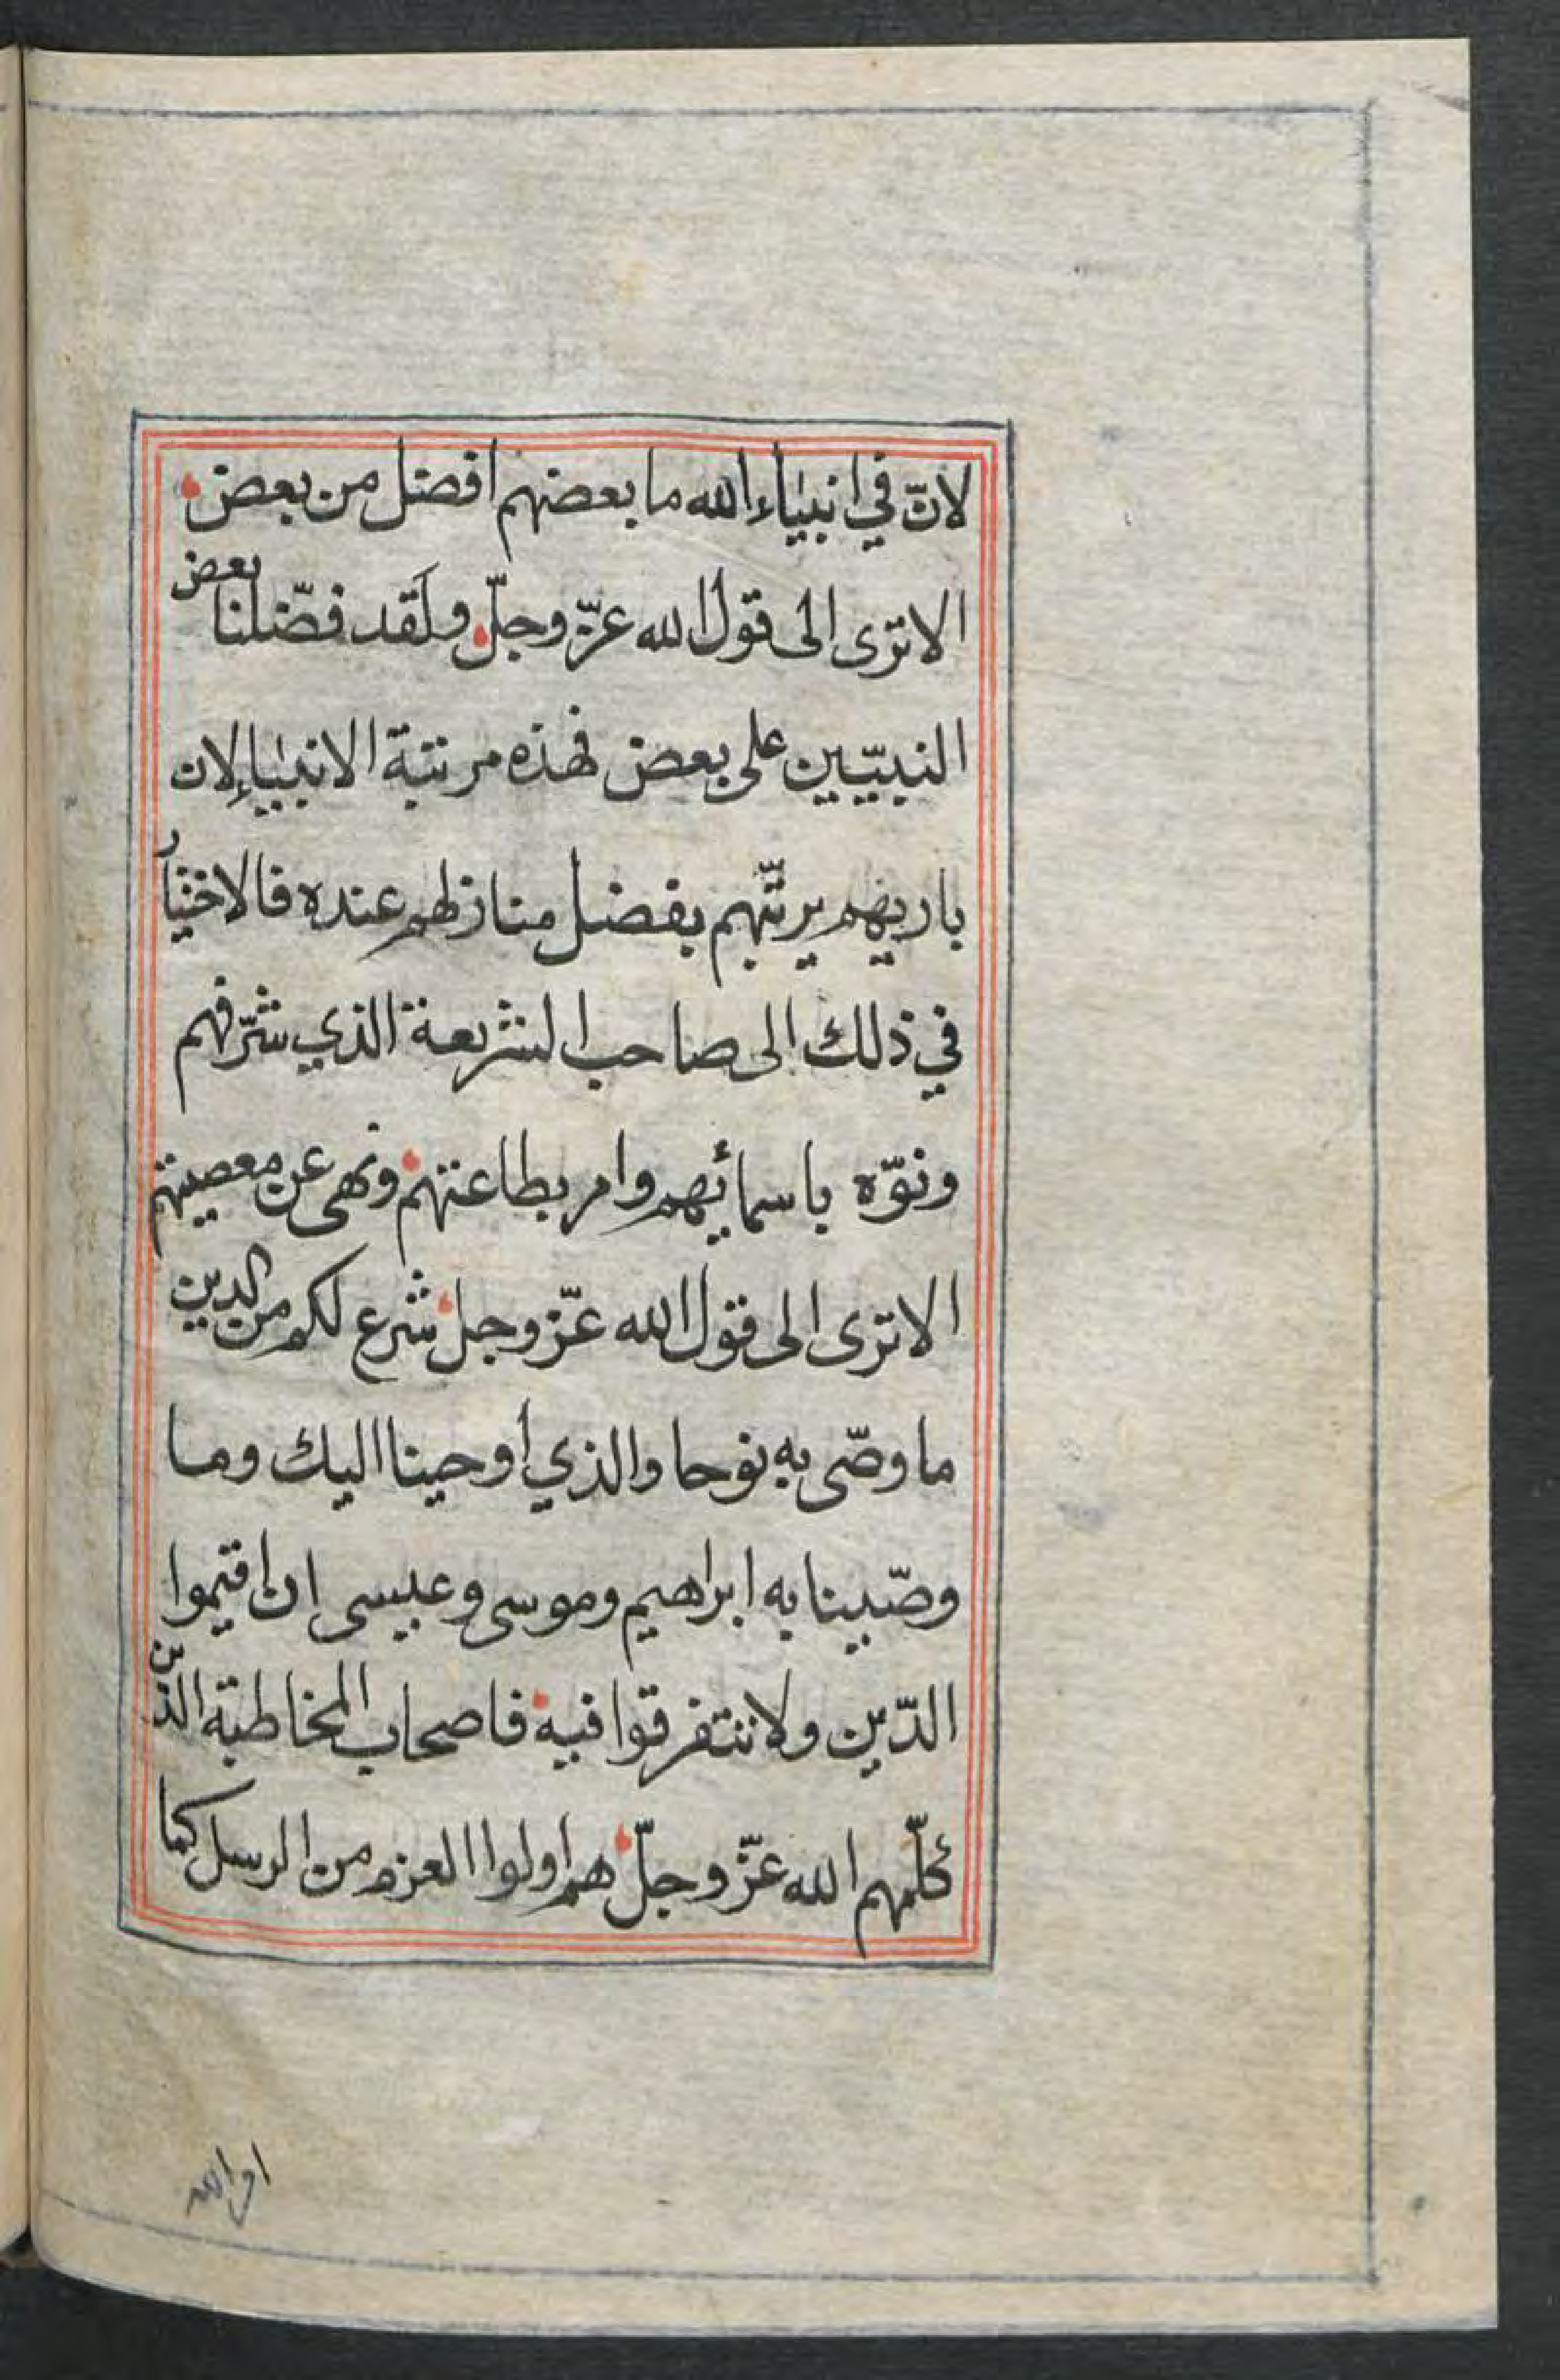 لانّ في انبياء الله ما بعضهم افضل من بعض
الا ترى الى قول الله عزّ وجلّ ولَقد فضّلنا بعض
النبيّين على بعض فهذه مرتبة الانبياء لان
باريهم يرتّبهم بفضل منازلهم عنده فالاختيار
في ذلك الى صاحب الشريعة الذي شرّفهم
ونوّه باسمائهم وامر بطاعتهم ونهى عن معصيتهم
الا ترى الى قول الله عزّ وجل شرع لكم من الدين
ما وصّى به نوحا والذي أوحينا اليك وما
وصّينا به ابراهيم وموسى وعيسى ان اقيموا
الدّين ولا تتفرقوا فيه فاصحاب المخاطبة الذين
كلّمهم الله عزّ وجلّ هم اولوا العزم من الرسل كما
امر الله